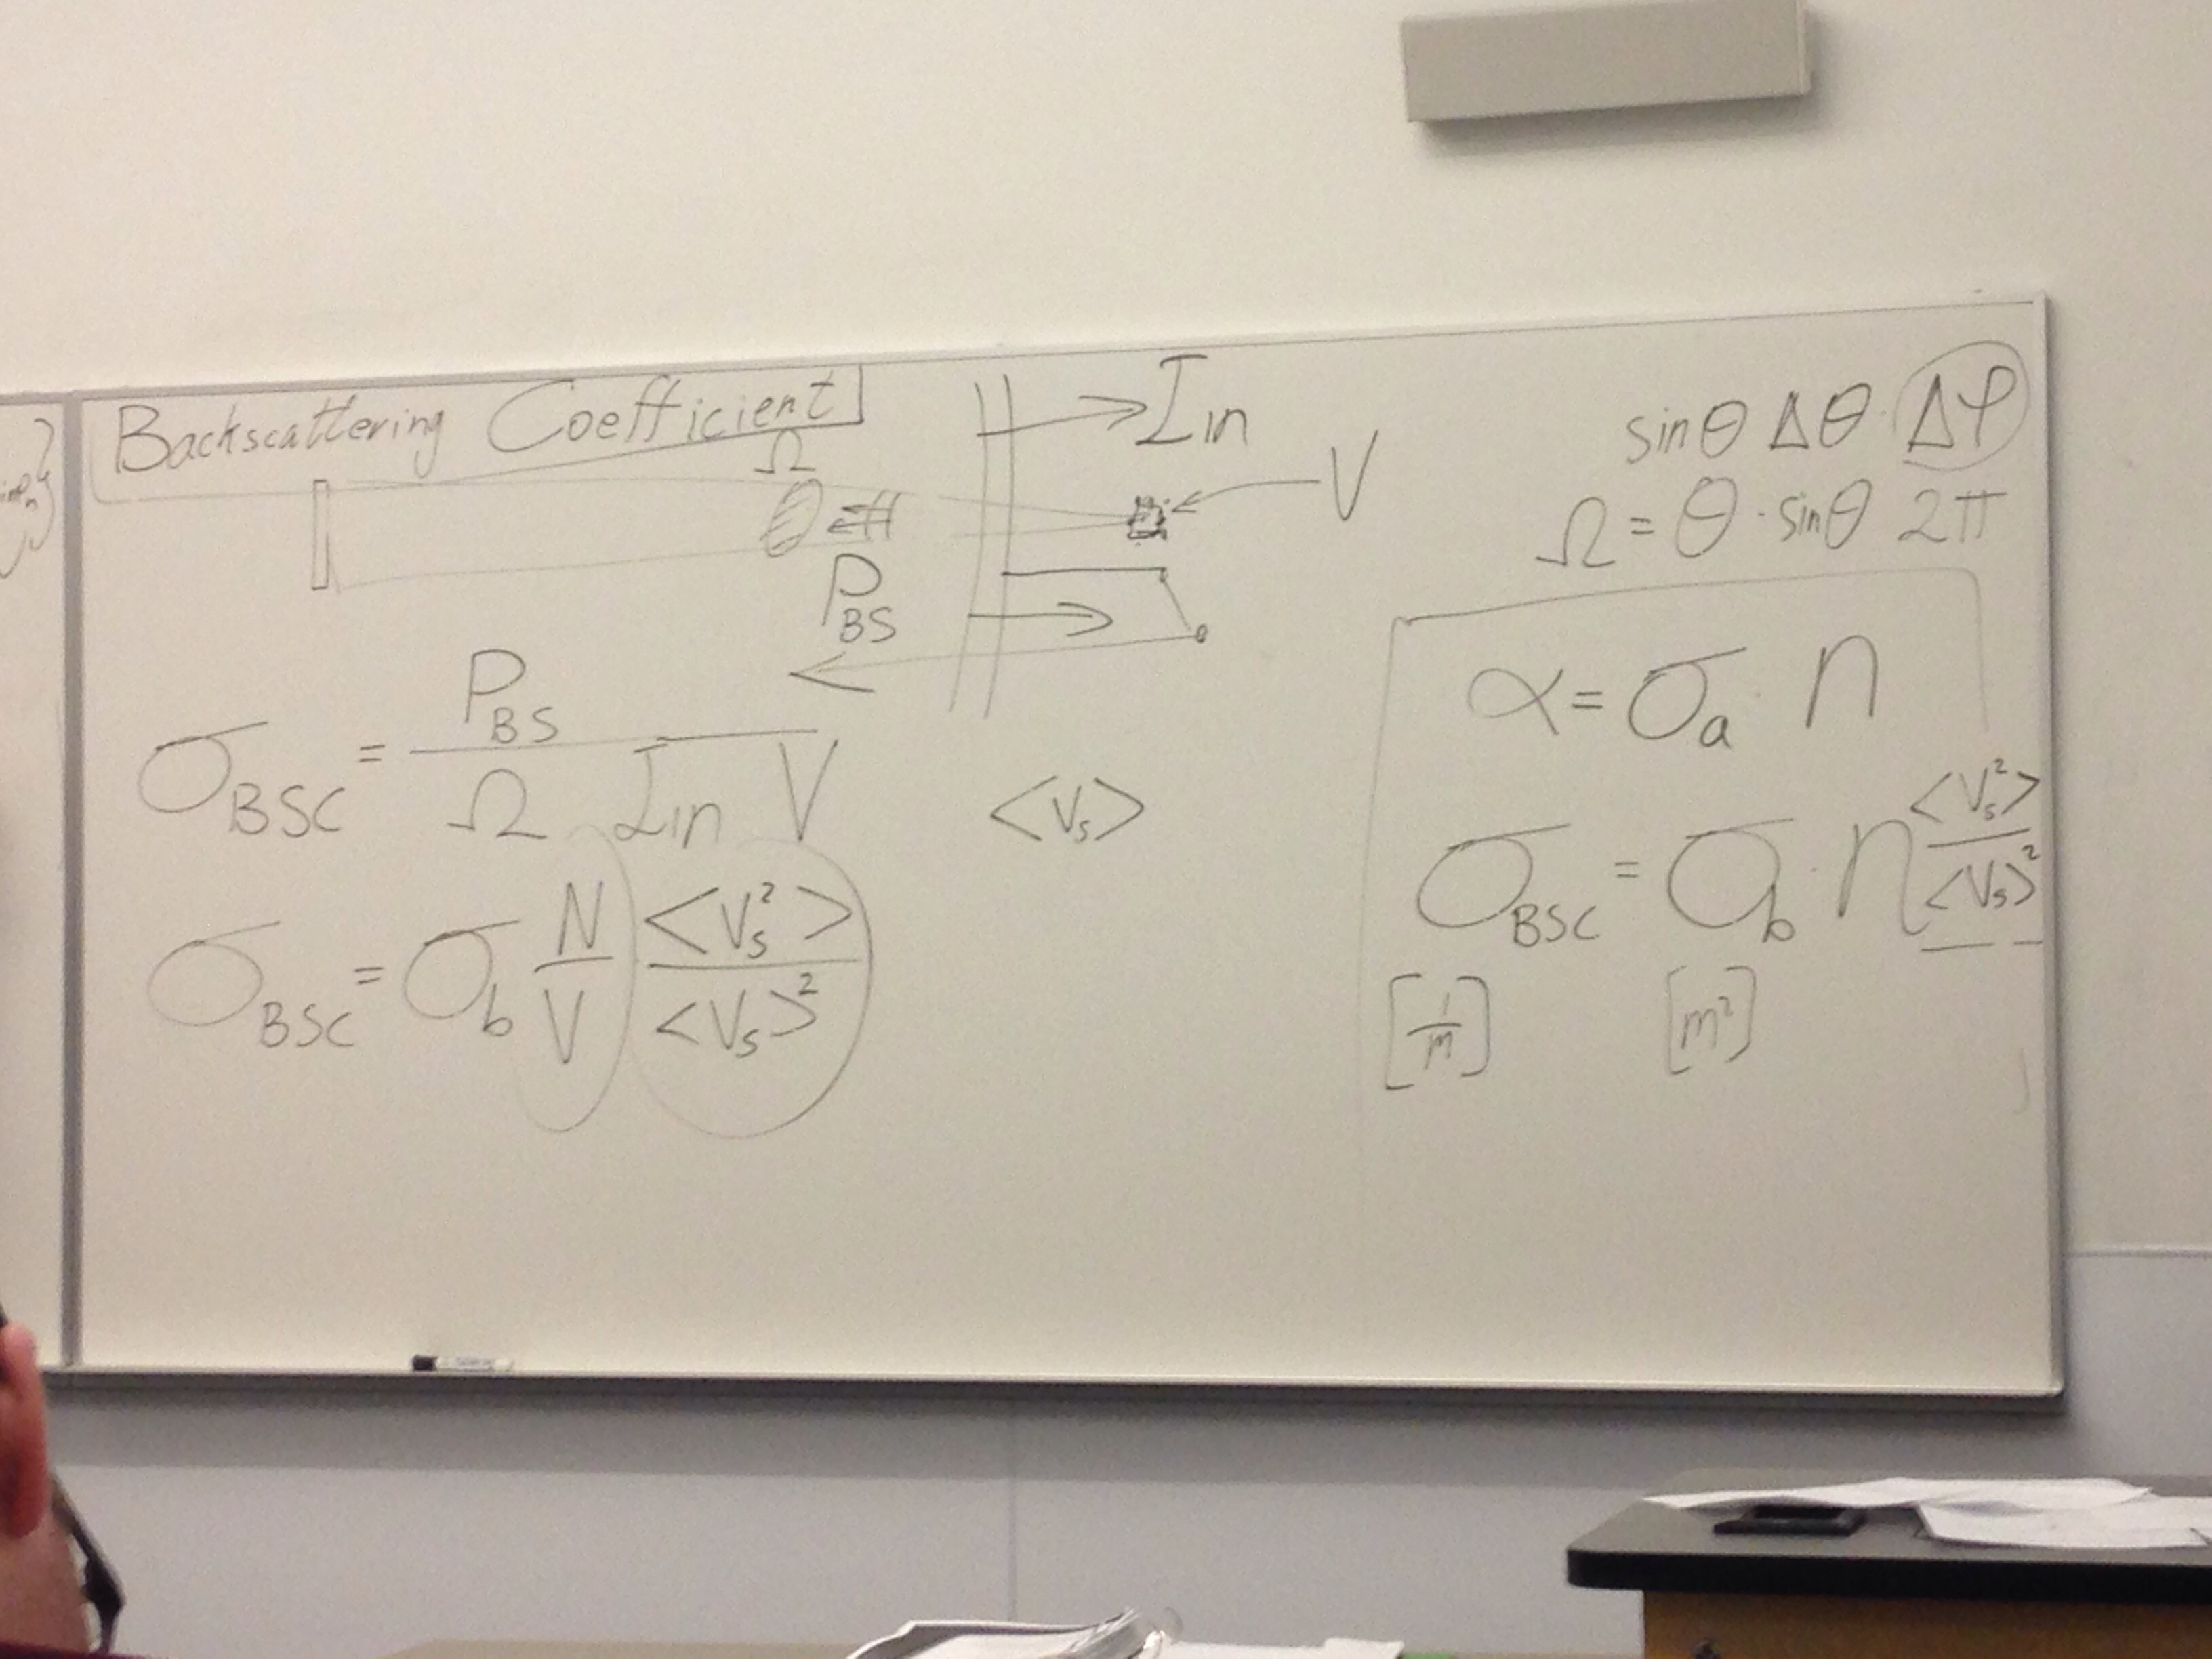 Backscattering Coefficient
Ω
P_BS
I_in
V
σ_BSC = P_BS / Ω I_in V
<V_s>
σ_BSC = σ_b N/V <V_s²>/<V_s>²
sinθ Δθ · Δφ
Ω = θ · sinθ 2π
α = σ_a · n
σ_BSC = σ_b · n <V_s²>/<V_s>²
[1/m] [m²]